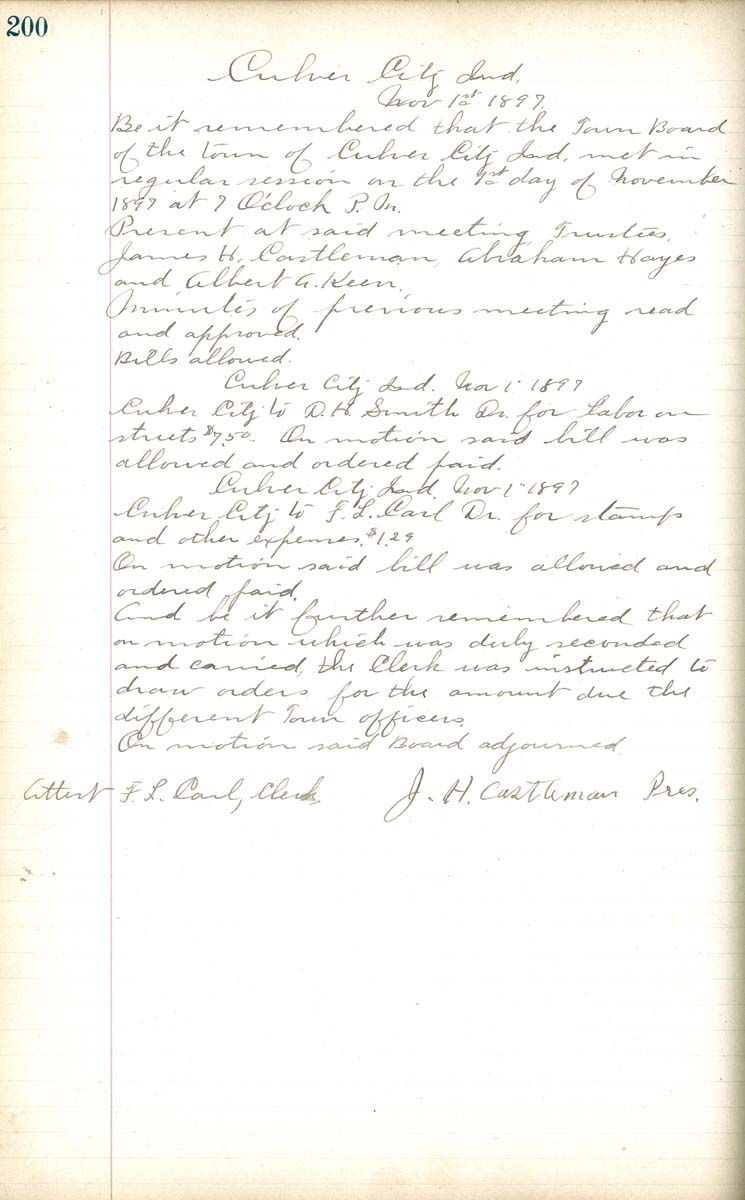 200
Culver City Ind.
Nov 1st 1897.
Be it remembered that the Town Board
of the town of Culver City Ind. met in
regular session on the 1st day of November
1897 at 7 O'clock P.M.
Present at said meeting Trustees,
James H. Castleman, Abraham Hayes
and Albert A. Keen.
Minutes of previous meeting read
and approved.
Bills allowed.
Culver City Ind. Nov 1" 1897
Culver City to D.H. Smith Dr. for labor on
streets $7.50. On motion said bill was
allowed and ordered paid.
Culver City Ind. Nov 1" 1897
Culver City to F.L. Carl Dr. for stamps
and other expenses, $1.29
On motion said bill was allowed and
ordered paid.
And be it further remembered that
on motion which was duly seconded
and carried, the Clerk was instructed to
draw orders for the amount due the
different Town officers.
On motion said Board adjourned.
Attest F. L. Carl, Clerk, J. H. Castleman Pres.